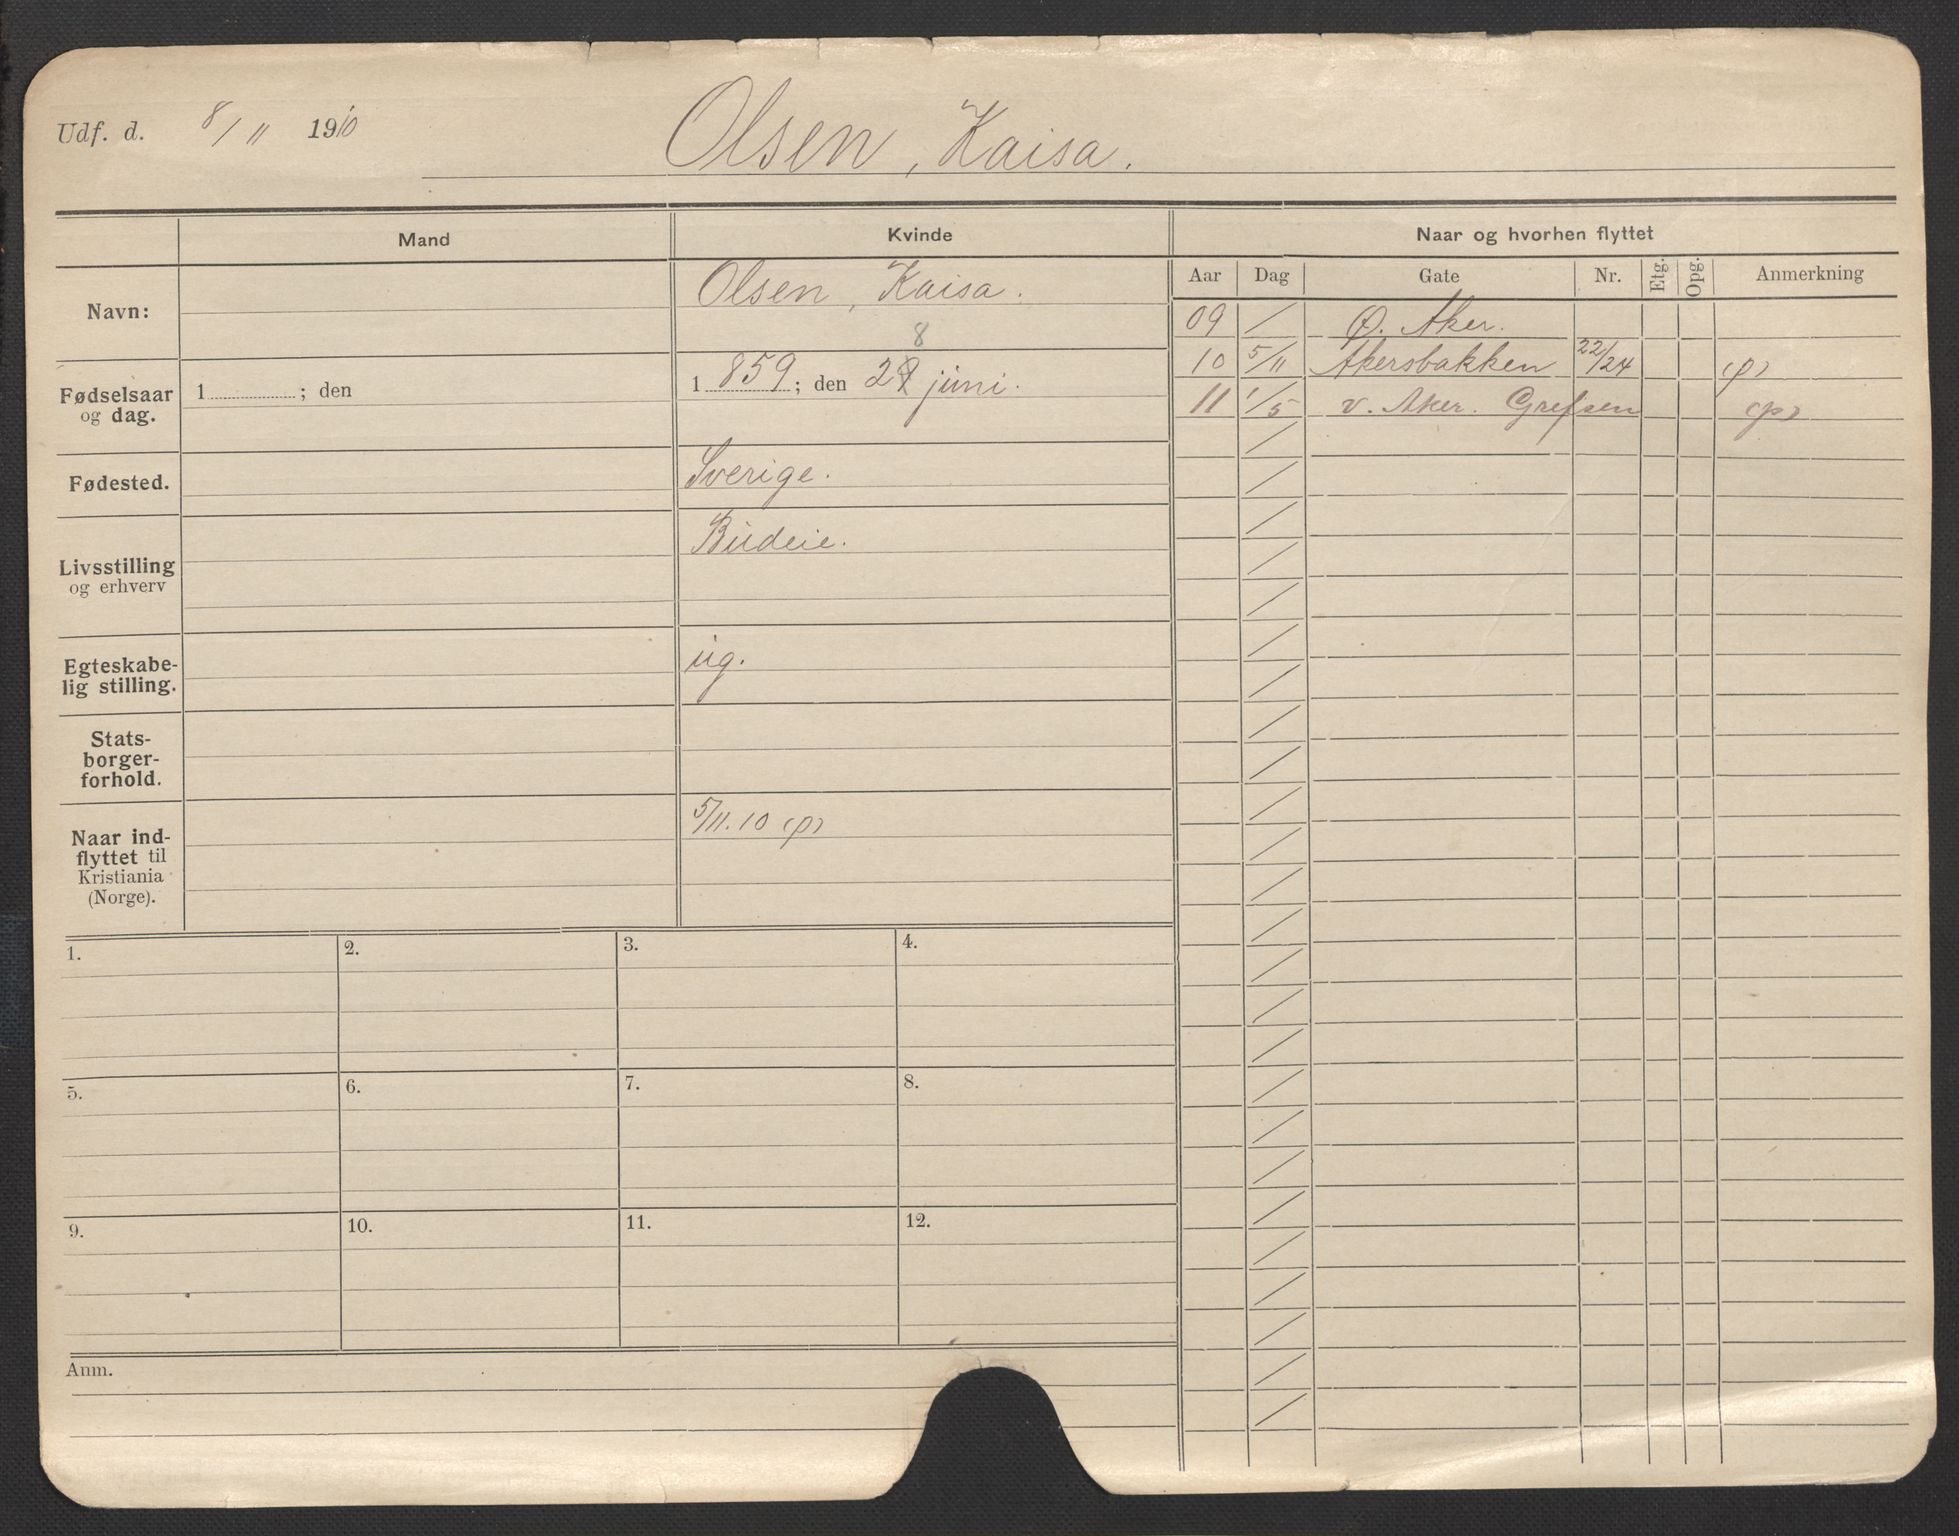 Udf. d. 8/11 1910 Olsen, Kaisa.
Mand
Kvinde
Naar og hvorhen flyttet
Navn:
Olsen, Kaisa.
Fødselsaar
og dag.
1 ; den
8
1 859 ; den 29 juni.
Fødested.
Sverige.
Livsstilling
og erhverv
Budeie.
Egteskabe-
lig stilling.
ug.
Stats-
borger-
forhold.
Naar ind-
flyttet til
Kristiania
(Norge).
5/11.10 (p)
Aar Dag Gate Nr. Etg. Opg. Anmerkning
09 / Ø. Aker.
10 5/11 Akersbakken 22/24 (p)
11 1/5 v. Aker. Grefsen (p)
1. 2. 3. 4.
5. 6. 7. 8.
9. 10. 11. 12.
Anm.